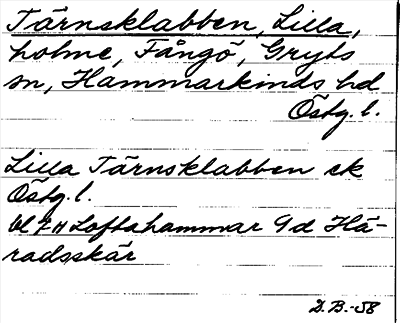 Tärnsklabben, Lilla,
holme, Fångö, Gryts
sn, Hammarkinds hd
Östg. l.
Lilla Tärnsklabben ek
Östg. l.
Bl 7 H Loftahammar 9d Hä-
radsskär
D.B.-58